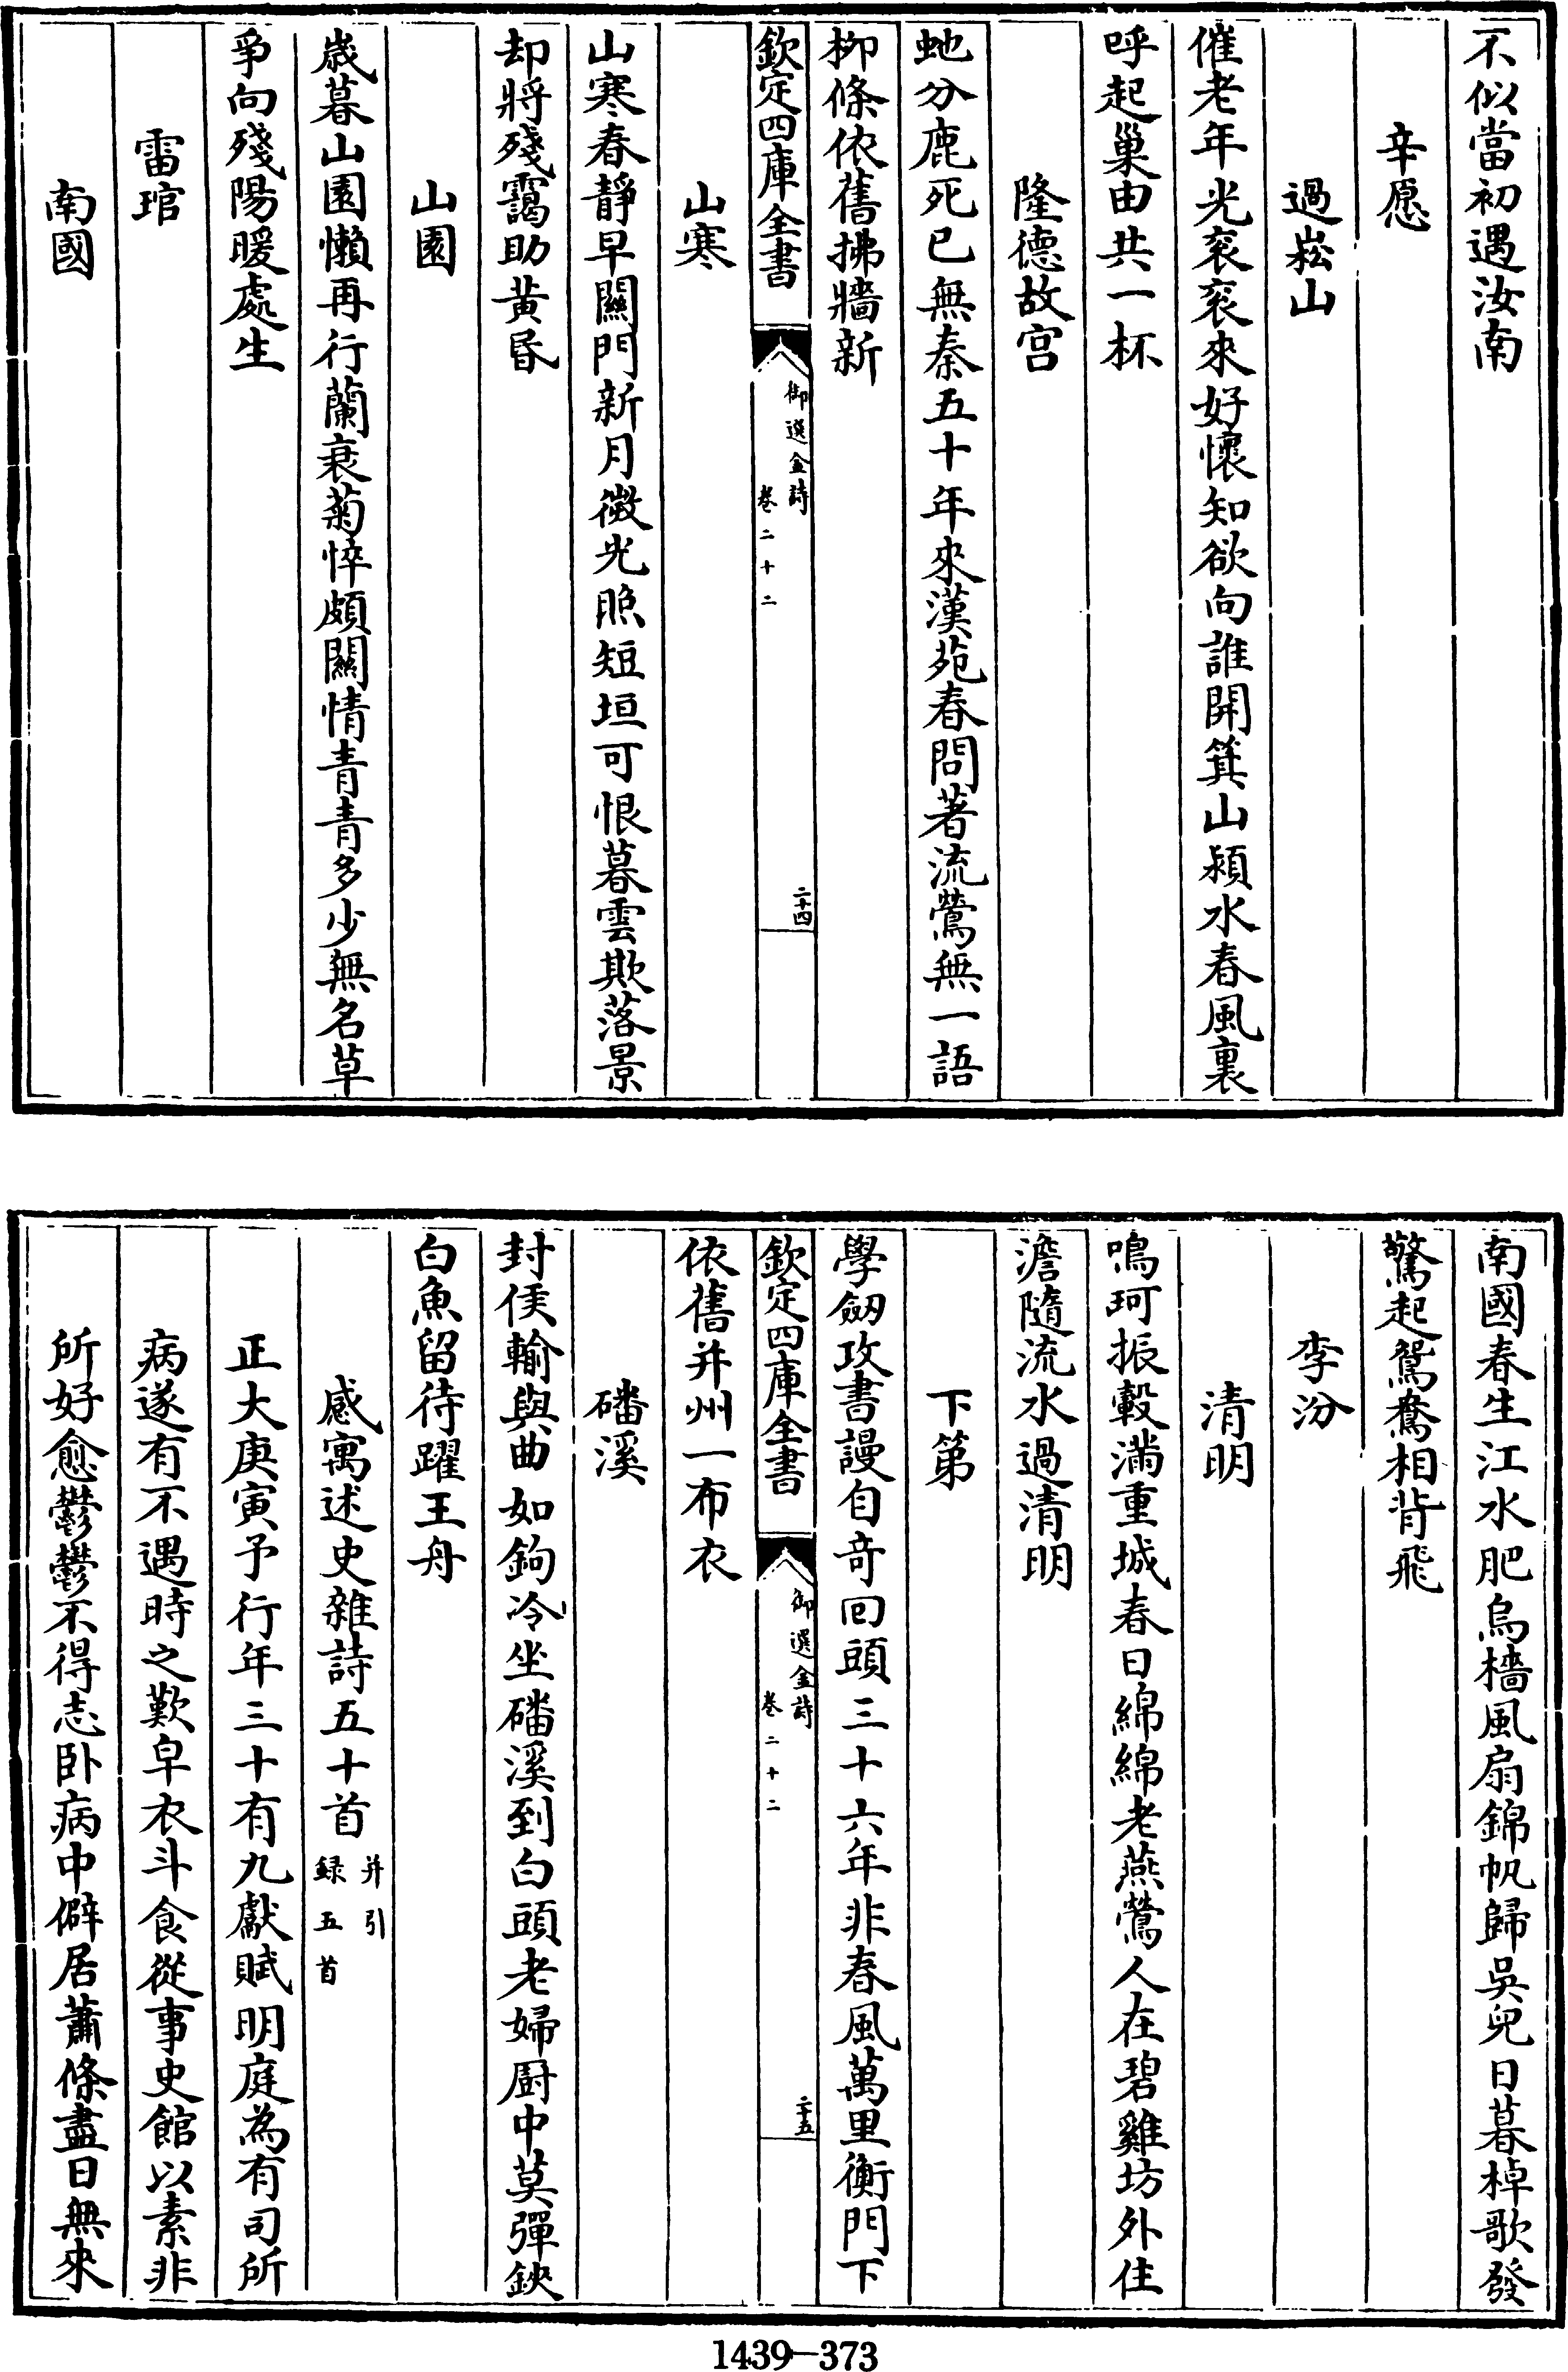 不似當初遇汝南
辛愿
過崧山
催老年光衮衮來好懷知欲向誰開箕山潁水春風裏
呼起巢由共一杯
隆德故宫
虵分鹿死已無秦五十年來漢苑春問著流鶯無一語
柳條依舊拂牆新
欽定四庫全書
御選金詩
卷二十二
二十四
山寒
山寒春靜早關門新月微光照短垣可恨暮雲欺落景
却將殘靄助黄昏
山園
歲暮山園懶再行蘭衰菊悴頗關情青青多少無名草
爭向殘陽暖處生
雷琯
南國
南國春生江水肥烏檣風扇錦帆歸吳兒日暮棹歌發
驚起鴛鴦相背飛
李汾
清明
鳴珂振轂滿重城春日綿綿老燕鶯人在碧雞坊外住
澹隨流水過清明
下第
學劒攻書謾自奇回頭三十六年非春風萬里衡門下
欽定四庫全書
御選金詩
卷二十二
二十五
依舊并州一布衣
磻溪
封侯輸與曲如鉤冷坐磻溪到白頭老婦厨中莫彈鋏
白魚留待躍王舟
感寓述史雜詩五十首
并引
録五首
正大庚寅予行年三十有九獻賦明庭為有司所
病遂有不遇時之歎皁衣斗食從事史館以素非
所好愈鬱鬱不得志卧病中僻居蕭條盡日無來
1439—373